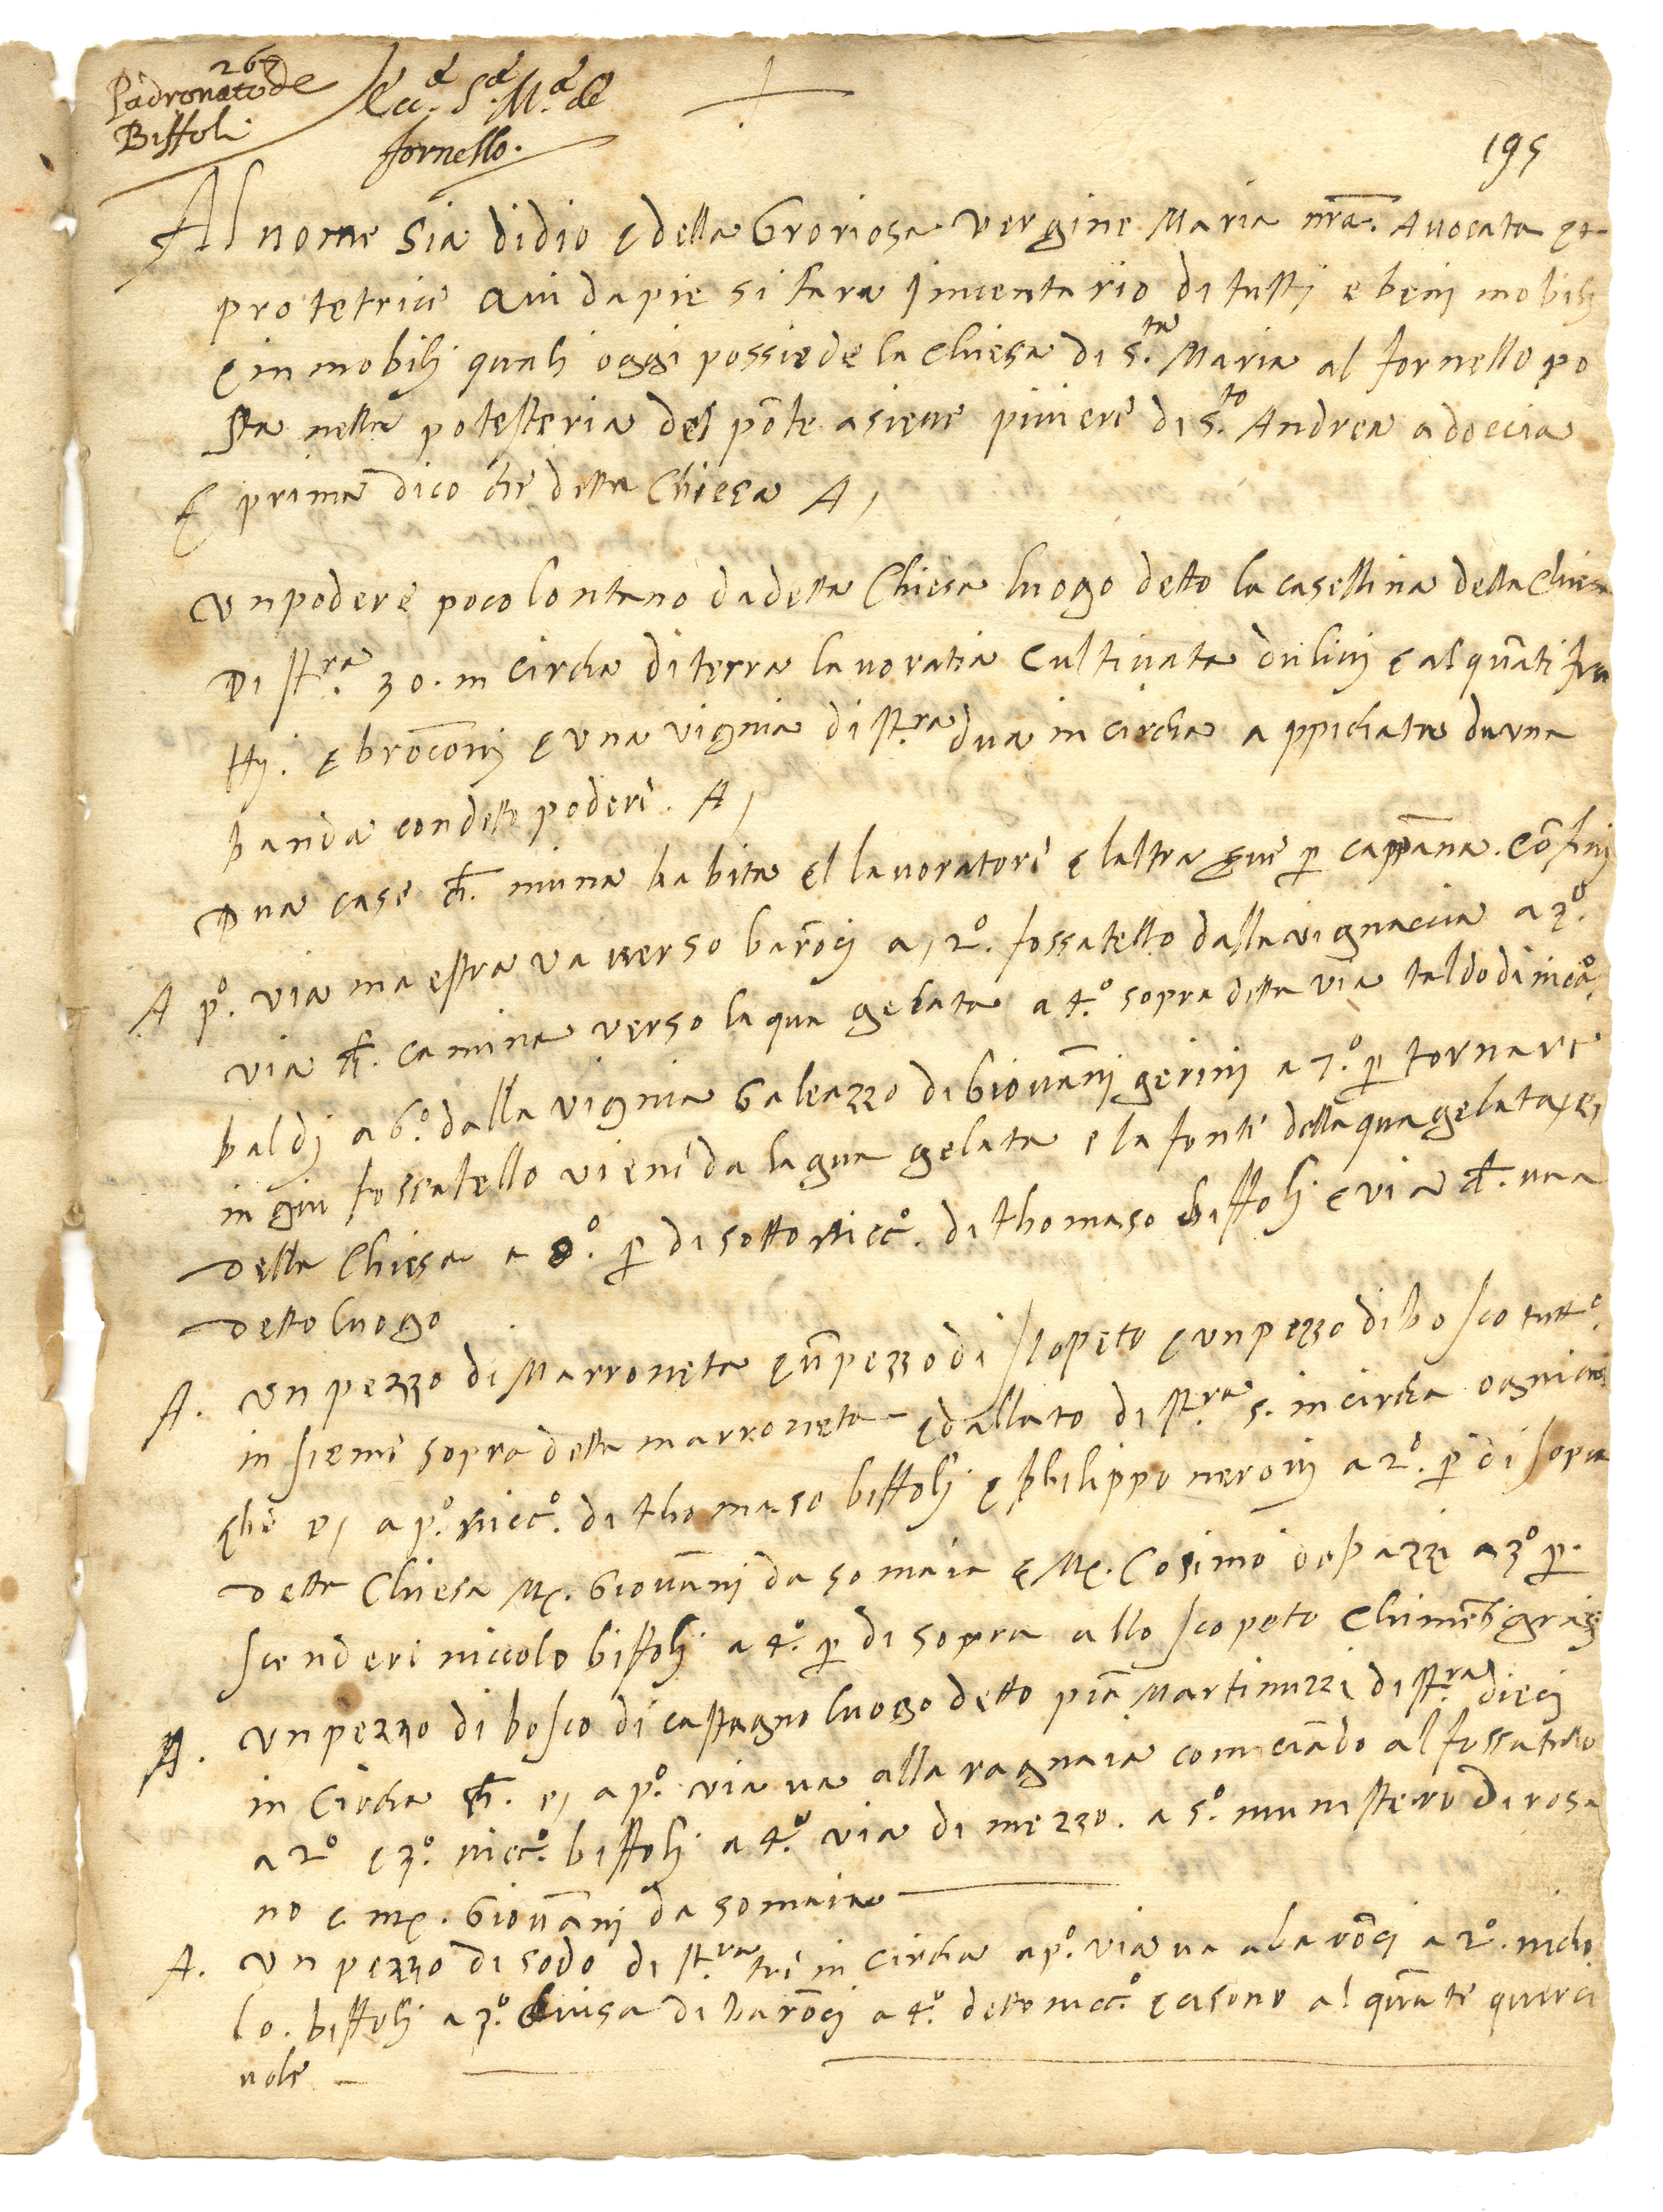 267
Padronato de
Biffoli
Ecca. Sa. Ma. de
fornello.
195
Al nome sia didio e della Groriosa vergine Maria nra. Avocata et
protetrice Qui dapie si fara Inventario di tutti e beni mobili
e inmobili quali oggi possiede la Chiesa di s.ta Maria al fornello po
sta nella potesteria del pote asieve piviere di s.to Andrea a doccia
E prima dico che detta Chiesa A,
Un podere poco lontano da detta Chiesa luogo detto la casellina della Chiesa
Di stra. 30. in circha di terra lavoratia Cultivata dulivi e alquati fru
tti. e broconi e una vignia di stra dua in circha appichata duna
banda con detto podere. A,
Dua case ch. inuna habita el lavoratore e laltra serve p capana. Cofini
A po. via maestra va verso baroci a, 2o. fossatello dalla vignaccia a 3o.
via ch. camina verso laqua gelata a 4.o sopra detta via taldo di nicco.
baldi a 6o. dalla vignia Galeazzo di Giovani gerini a 7.o p tornare
in giu fossatello viene da laqua gelata e la fonte dellaqua gelata e,
della Chiesa a 8o. p di sotto Nicco. di thomaso biffoli e via ch. va a
detto luogo
A. Un pezzo di Marroneta e u pezzo di scopeto e un pezzo di bosco tutto
insieme sopra detta marroneta e dallato di stra 5. in circha ogni cosa
che e, a po. nicco. di thomaso biffoli e philippo neroni a 2o. p di sopra
detta Chiesa Mx. Giovani da somaia e Mx. Cosimo de pazzi a 3o p.
scendere niccolo biffoli a 4o. p di sopra allo scopeto Chimeti
A. Un pezzo di bosco di castagno luogo detto pia Martinuzzi di stra dieci
in Circha ch. e, a po. via va alla ragnaia cominciado al fossatello
a 2o e 3o. nicco. biffoli a 4o. via di mezzo. a 5o. munistero di rosa
no e mx. Giovani da somaia
A. Un pezzo di sodo di stra tre in circha a po. via va a baroci a 2o. nicho
lo. biffoli a 3o. Chiesa di baroci a 4o. detto nicco. e cisono alquate querci
uole